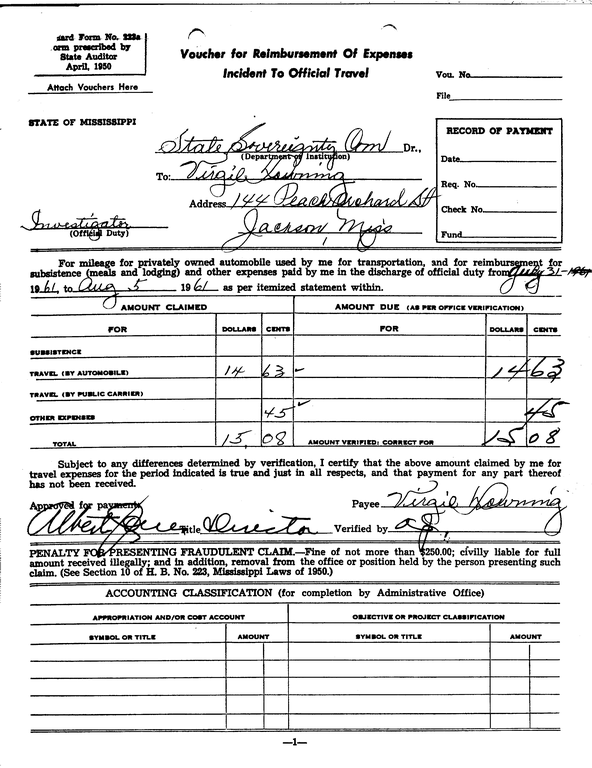 dard Form No. 223a
orm prescribed by
State Auditor
April, 1950
Attach Vouchers Here
Voucher for Reimbursement Of Expenses
Incident To Official Travel
Vou. No.
File
STATE OF MISSISSIPPI
RECORD OF PAYMENT
Date
Req. No.
Check No.
Fund
State Sovereignty Com Dr.,
(Department or Institution)
To: Virgil Downing
Address 144 Peach Orchard St
Jackson, Miss
Investigator
(Official Duty)
For mileage for privately owned automobile used by me for transportation, and for reimbursement for
subsistence (meals and lodging) and other expenses paid by me in the discharge of official duty from July 31-
1961, to Aug 5 1961 as per itemized statement within.
AMOUNT CLAIMED AMOUNT DUE (AS PER OFFICE VERIFICATION)
FOR DOLLARS CENTS FOR DOLLARS CENTS
SUBSISTENCE
TRAVEL (BY AUTOMOBILE) 14 63 14 63
TRAVEL (BY PUBLIC CARRIER)
OTHER EXPENSES 45 45
TOTAL 15, 08 AMOUNT VERIFIED: CORRECT FOR 15 08
Subject to any differences determined by verification, I certify that the above amount claimed by me for
travel expenses for the period indicated is true and just in all respects, and that payment for any part thereof
has not been received.
Approved for payment: Payee Virgil Downing
Albert Title Director Verified by
PENALTY FOR PRESENTING FRAUDULENT CLAIM.—Fine of not more than $250.00; civilly liable for full
amount received illegally; and in addition, removal from the office or position held by the person presenting such
claim. (See Section 10 of H. B. No. 223, Mississippi Laws of 1950.)
ACCOUNTING CLASSIFICATION (for completion by Administrative Office)
APPROPRIATION AND/OR COST ACCOUNT OBJECTIVE OR PROJECT CLASSIFICATION
SYMBOL OR TITLE AMOUNT SYMBOL OR TITLE AMOUNT
—1—